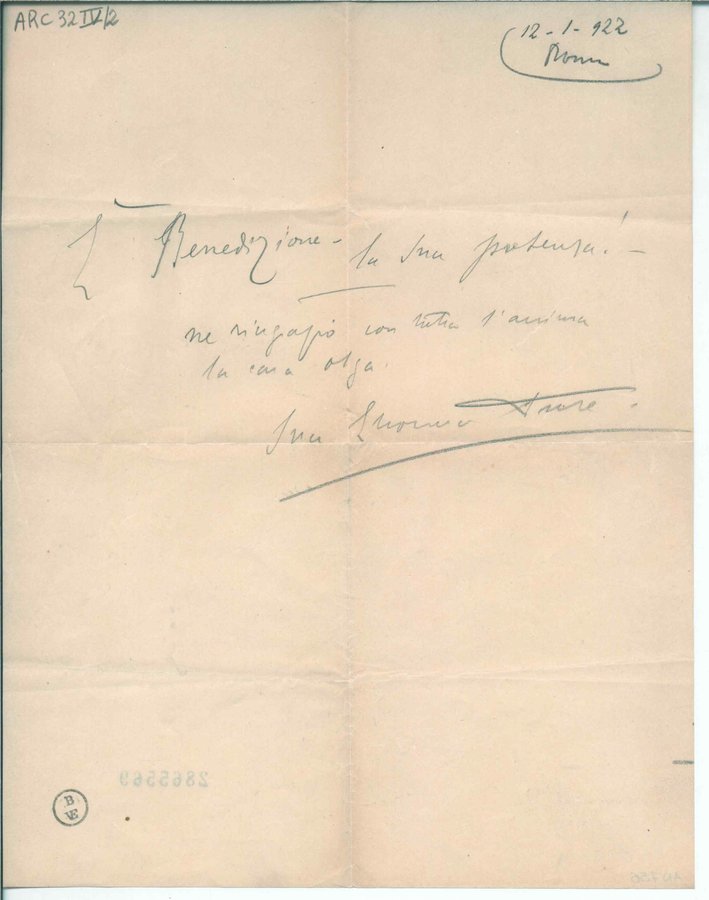 ARC 32 IV/2
12-1-922
Roma
È Benedizione - la sua potenza! -
ne ringrazio con tutta l'anima
la cara Olga.
Sua Eleonora Duse.
2865569
B
VE